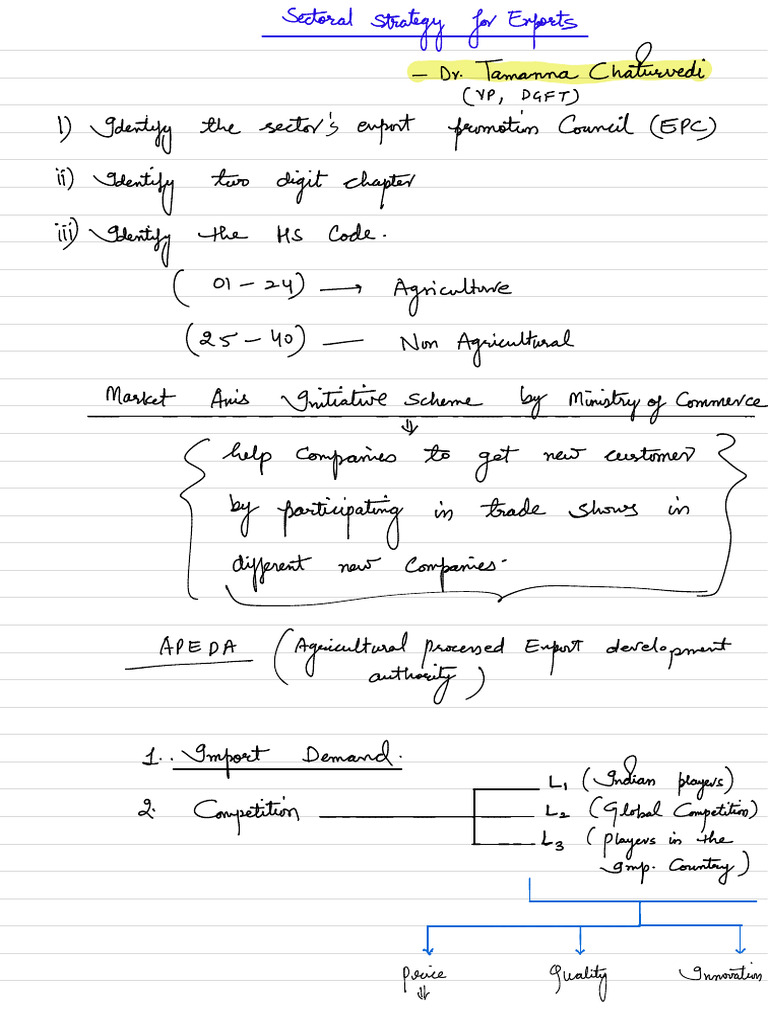 Sectoral Strategy for Exports
- Dr. Tamanna Chaturvedi
(VP, DGFT)
i) Identify the sector's export promotion Council (EPC)
ii) Identify two digit chapter
iii) Identify the HS Code.
(01-24) → Agriculture
(25-40) — Non Agricultural
Market Axis Initiative Scheme by Ministry of Commerce
⇓
help Companies to get new customer
by participating in trade shows in
different new Companies.
APEDA (Agricultural processed Export development
authority)
1.. Import Demand.
2. Competition
L1 (Indian players)
L2 (Global Competition)
L3 (players in the
Imp. Country)
Price Quality Innovation
⇓